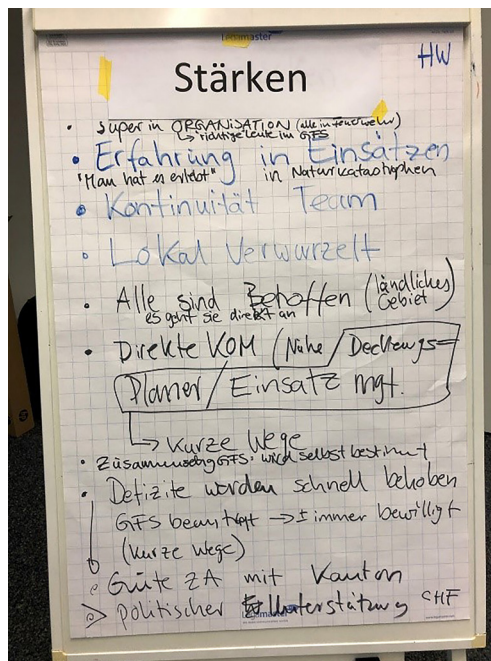 Legamaster
HW
Stärken
• Super in ORGANISATION (alle in Feuerwehr)
↳ richtige Leute im GFS
• Erfahrung in Einsätzen
"Man hat es erlebt" in Naturkatastrophen
• Kontinuität Team
• Lokal Verwurzelt
• Alle sind Betroffen (ländliches Gebiet)
es geht sie direkt an
• Direkte KOM (Nähe / Deckungs=
Planer / Einsatz mgt.
↳ Kurze Wege
• Zusammensetzg GFS: wird selbst bestimmt
• Defizite werden schnell behoben
GFS beantragt → ± immer bewilligt
(Kurze Wege)
• Gute ZA mit Kanton
> politischer Unterstützung CHF